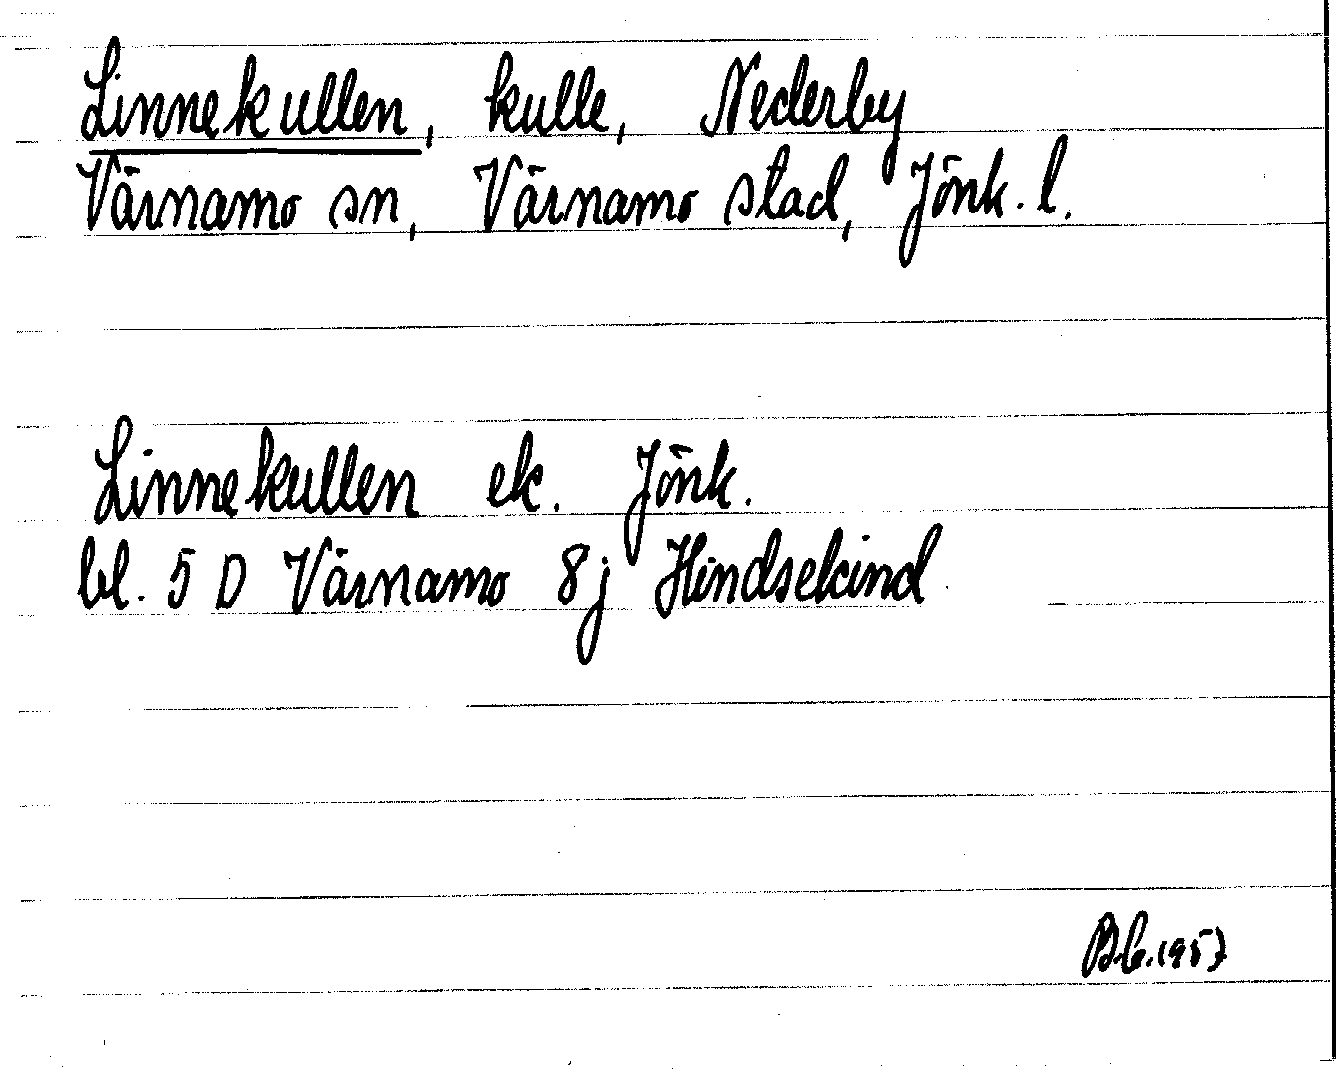 Linnekullen, kulle, Nederby
Värnamo sn, Värnamo stad, Jönk. l.
Linnekullen ek. Jönk.
bl. 5 D Värnamo 8j Hindsekind
1957